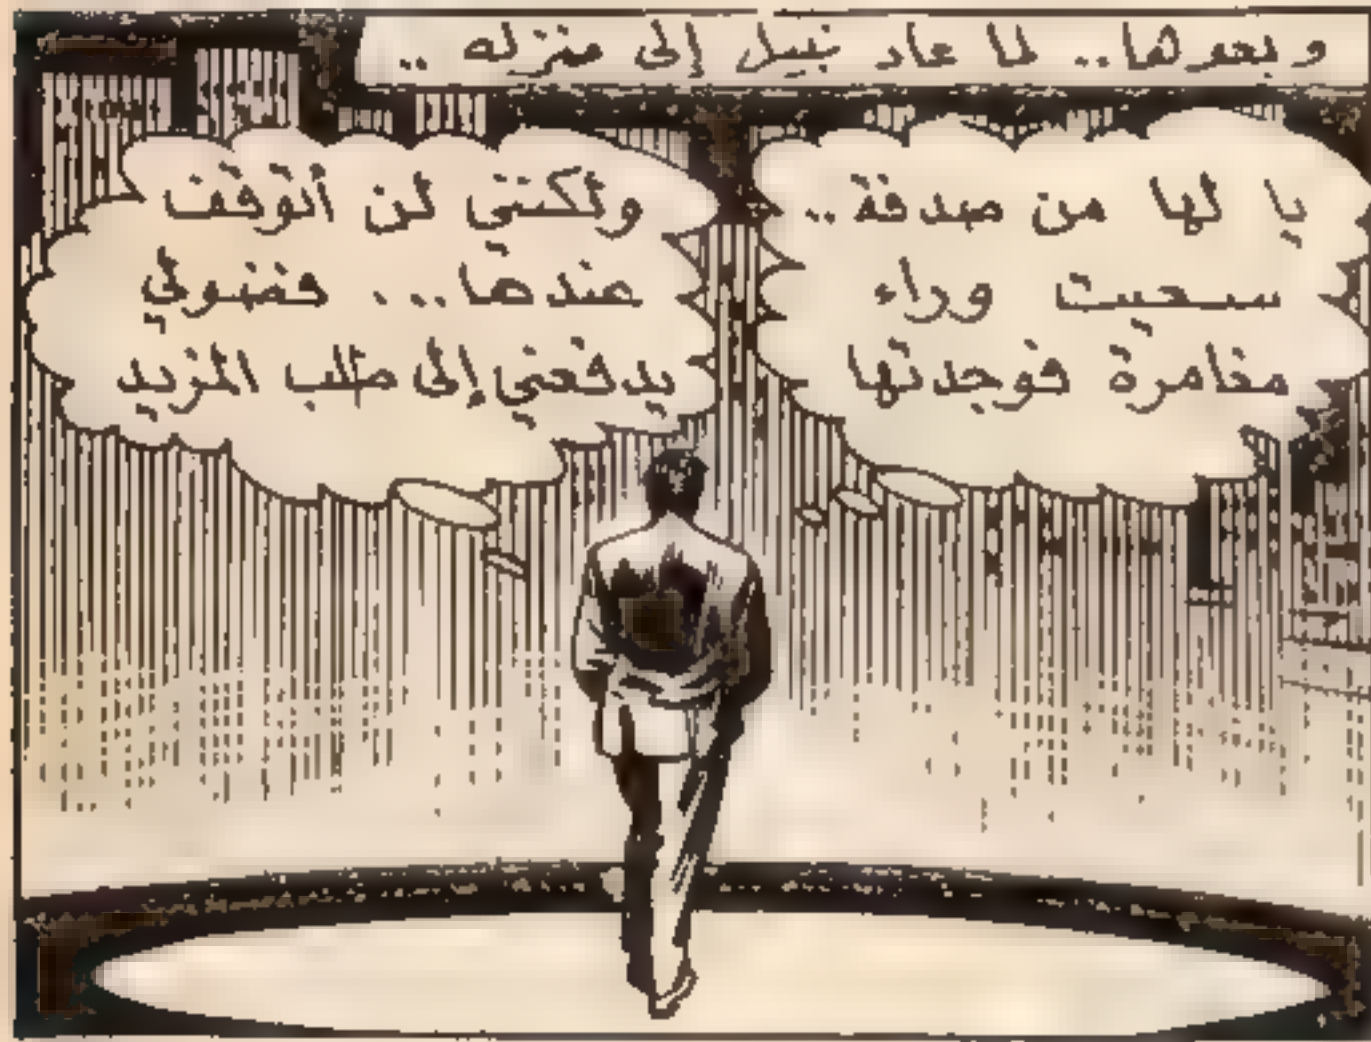 وبعدها.. لما عاد نبيل إلى منزله ..
يا لها من صدفة..
سعيت وراء
مغامرة فوجدتها
ولكنني لن أتوقف
عندها... ففضولي
يدفعني إلى طلب المزيد